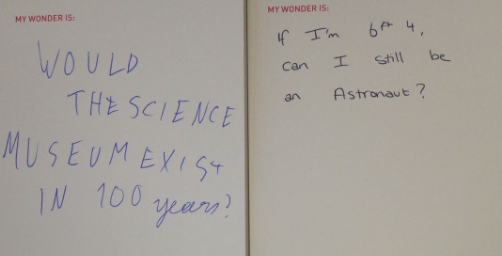 MY WONDER IS:
WOULD
THE SCIENCE
MUSEUM EXIST
IN 100 years?
MY WONDER IS:
If I'm 6ft 4,
can I still be
an Astronaut?